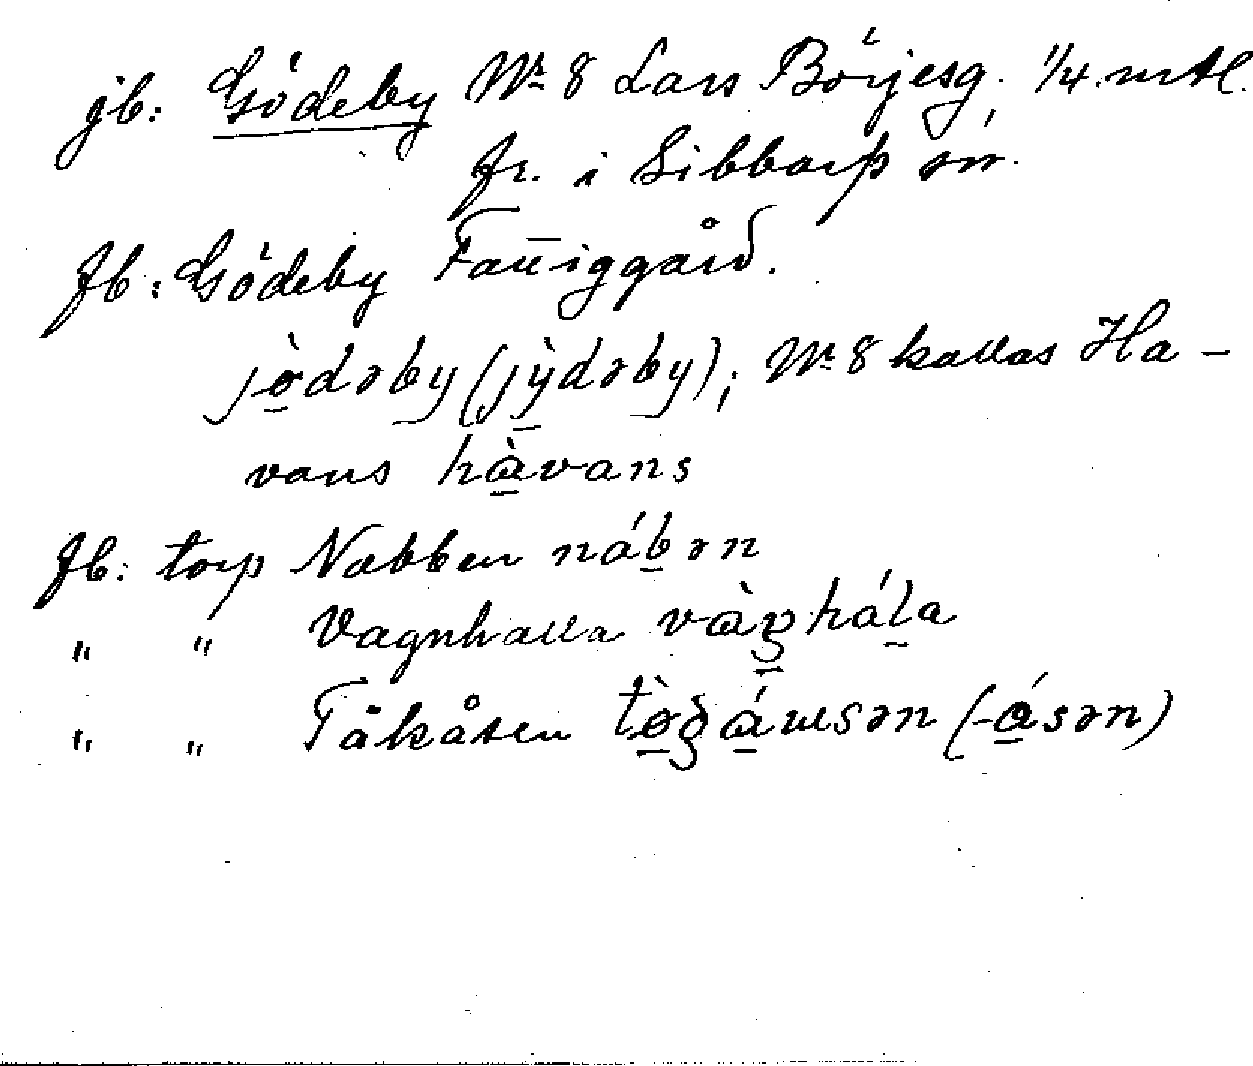 jb: Gödeby Nr 8 Lars Börjesg. 1/4 mtl.
fr. i Sibbarp sn.
fb: Gödeby Fattiggård.
jö̀dəby (jỳdəby); Nr 8 kallas Ha-
vans hàvans
fb: torp Nabben nábən
" " Vagnhalla vàŋhála
" " Tåkåsen